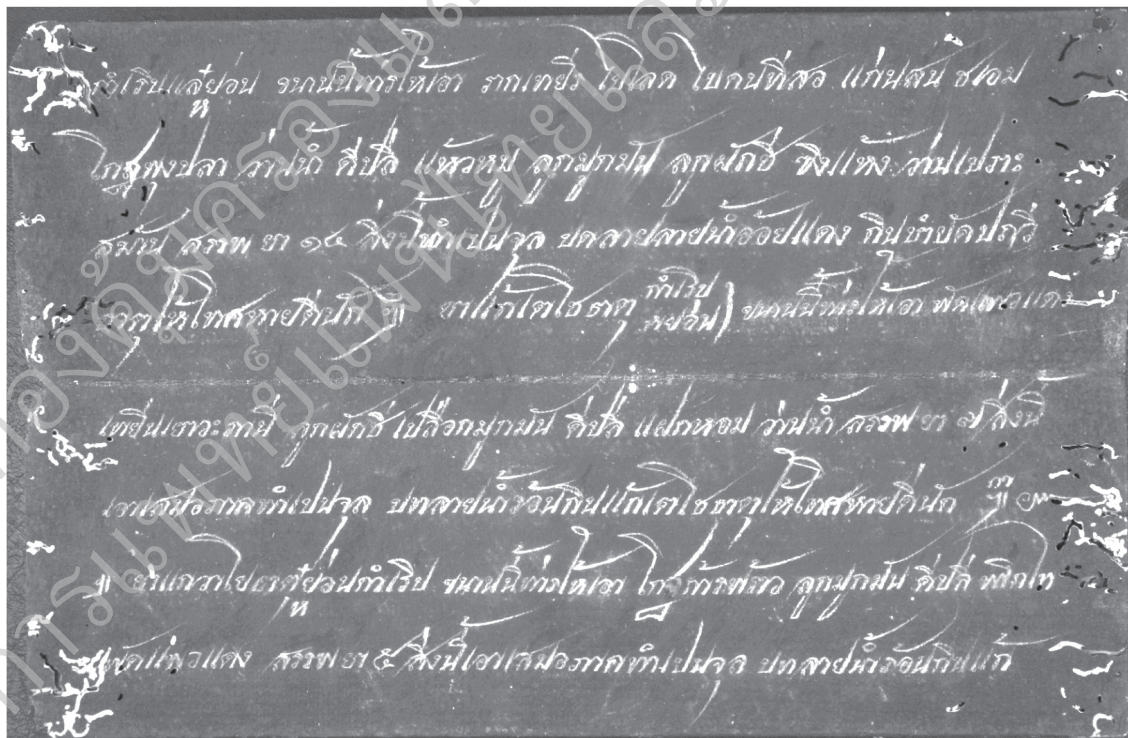 กำเริบแลหฺย่อน ขนานนี้ท่านให้เอา รากเทยีร ใบเลด ใบคนทีสอ แก่นสน ชเอม
โกฎพุงปลา ว่านน้ำ ดีปลี แห้วหมู ลูกมูกมัน ลูกผักชี ขิงแห้ง ว่านเปราะ
สมาน สรรพยา ๑๔ สิ่งนี้ทำเปนจุล บดลายลายน้ำอ้อยแดง กินบำบัดปถวี
ธาตุให้โทศหายดีนัก ยาแก้เตโชธาตุ กำเริบ หย่อน ขนานนี้ท่านให้เอา พัดแพวแดง
เทยีนเยาวะภานี ลูกผักชี เปลือกมูกมัน ดีปลี แฝกหอม ว่านน้ำ สรรพยา ๗ สิ่งนี้
เอาเสมอภาคทำเปนจุล บทลายน้ำร้อนกินแก้เตโชธาตุให้โทศหายดีนัก
๚ ยาแก้วาโยธาตุหฺย่อนกำเริบ ขนานนี้ท่านให้เอา โกฎก้านพร้าว ลูกมูกมัน ดีปลี พริกไท
พัดแพวแดง สรรพยา ๕ สิ่งนี้เอาเสมอภาคทำเปนจุล บทลายน้ำร้อนกินแก้